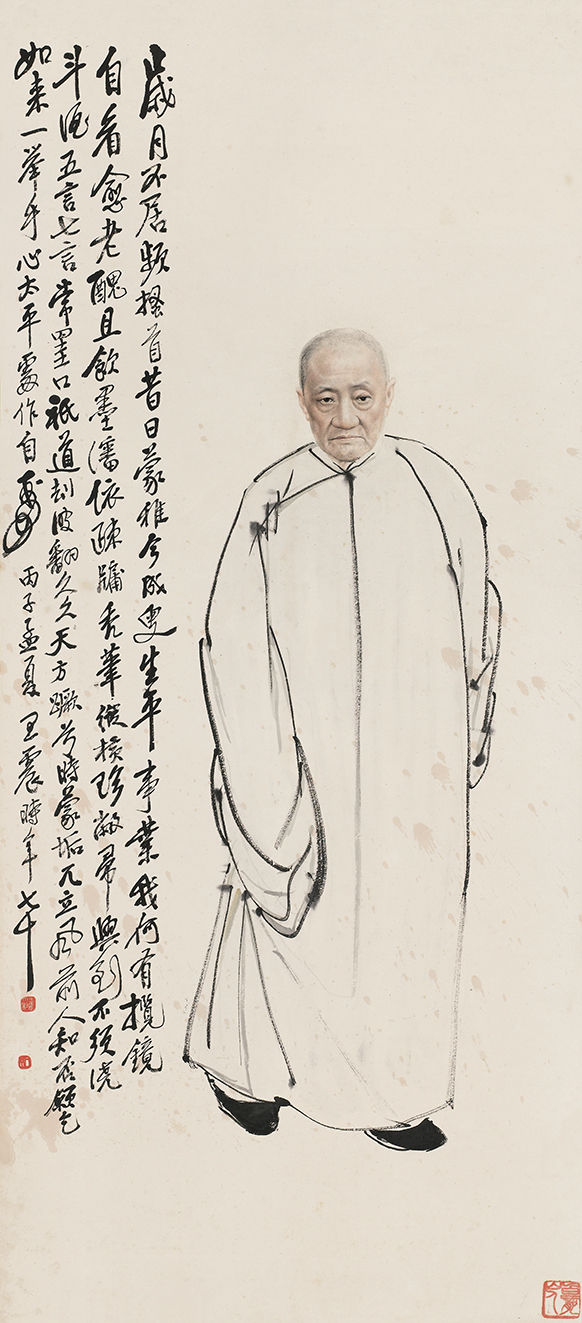 歲月不居頻搔首昔日蒙稚今成叟生平事業我何有攬鏡
自看愈老醜且飲墨瀋依疎牖禿筆縱橫珍敝帚興到不須澆
斗酒五言七言常罣口祇道劫波翻久久天方蹶兮時蒙垢兀立風前人知否願乞
如來一舉手心太平處作自壽 丙子孟夏 王震時年七十